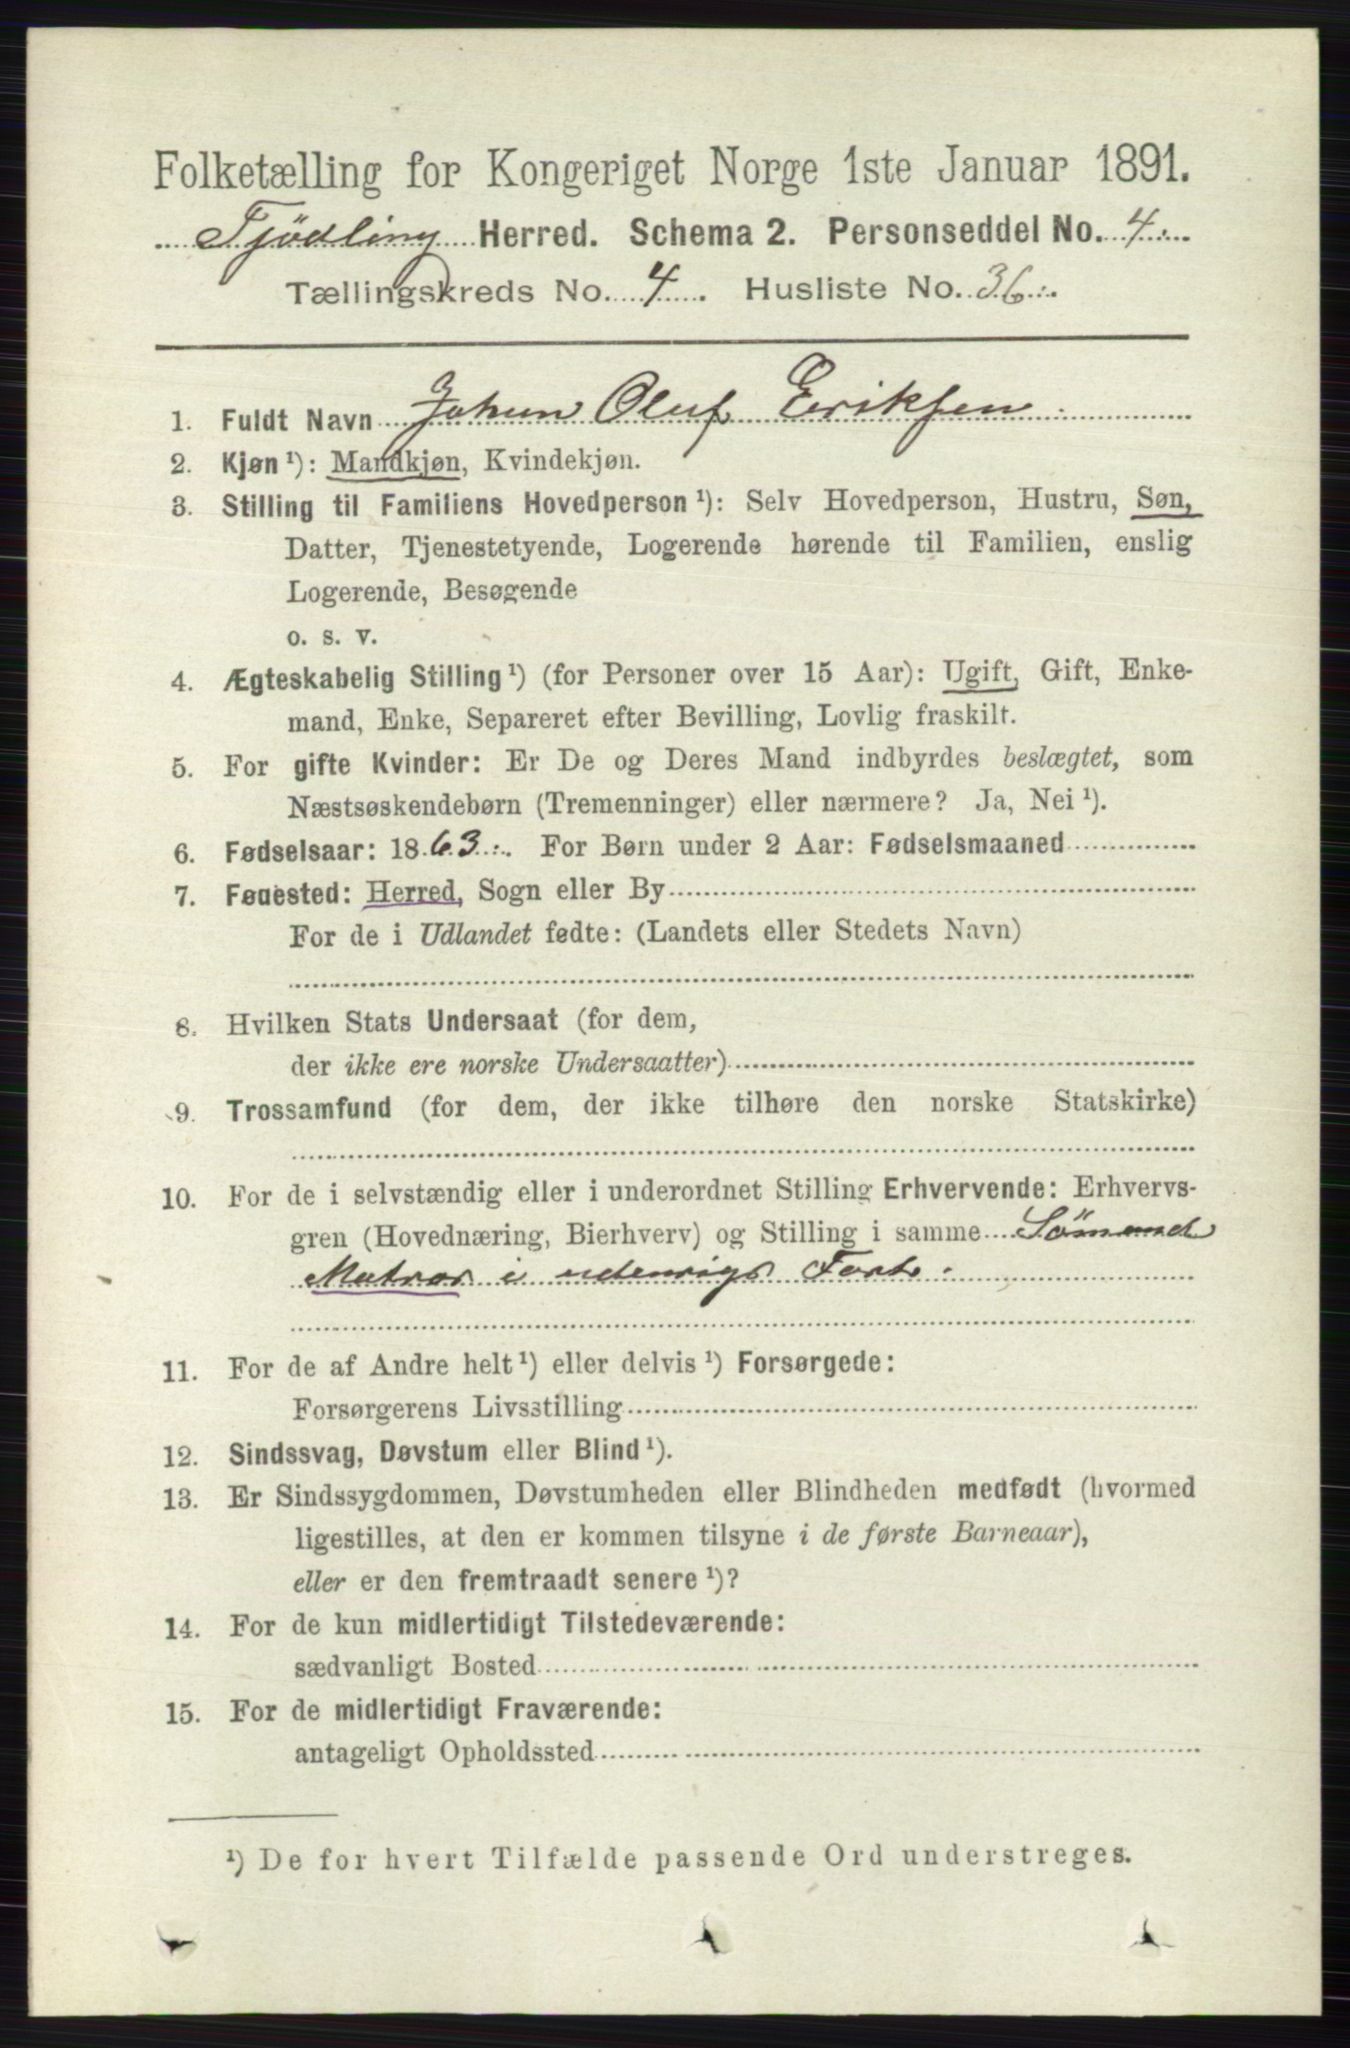 Folketælling for Kongeriget Norge 1ste Januar 1891.
Tjödling Herred. Schema 2. Personseddel No. 4.
Tællingskreds No. 4. Husliste No. 36.
1. Fuldt Navn Johan Oluf Eriksen
2. Kjøn ¹): Mandkjøn, Kvindekjøn.
3. Stilling til Familiens Hovedperson ¹): Selv Hovedperson, Hustru, Søn,
Datter, Tjenestetyende, Logerende hørende til Familien, enslig
Logerende, Besøgende
o. s. v.
4. Ægteskabelig Stilling ¹) (for Personer over 15 Aar): Ugift, Gift, Enke-
mand, Enke, Separeret efter Bevilling, Lovlig fraskilt.
5. For gifte Kvinder: Er De og Deres Mand indbyrdes beslægtet, som
Næstsøskendebørn (Tremenninger) eller nærmere? Ja, Nei ¹).
6. Fødselsaar: 1863. For Børn under 2 Aar: Fødselsmaaned
7. Fødested: Herred, Sogn eller By
For de i Udlandet fødte: (Landets eller Stedets Navn)
8. Hvilken Stats Undersaat (for dem,
der ikke ere norske Undersaatter)
9. Trossamfund (for dem, der ikke tilhøre den norske Statskirke)
10. For de i selvstændig eller i underordnet Stilling Erhvervende: Erhvervs-
gren (Hovednæring, Bierhverv) og Stilling i samme Sömand
Matros i udenrigs Fart.
11. For de af Andre helt ¹) eller delvis ¹) Forsørgede:
Forsørgerens Livsstilling
12. Sindssvag, Døvstum eller Blind ¹).
13. Er Sindssygdommen, Døvstumheden eller Blindheden medfødt (hvormed
ligestilles, at den er kommen tilsyne i de første Barneaar),
eller er den fremtraadt senere ¹)?
14. For de kun midlertidigt Tilstedeværende:
sædvanligt Bosted
15. For de midlertidigt Fraværende:
antageligt Opholdssted
¹) De for hvert Tilfælde passende Ord understreges.